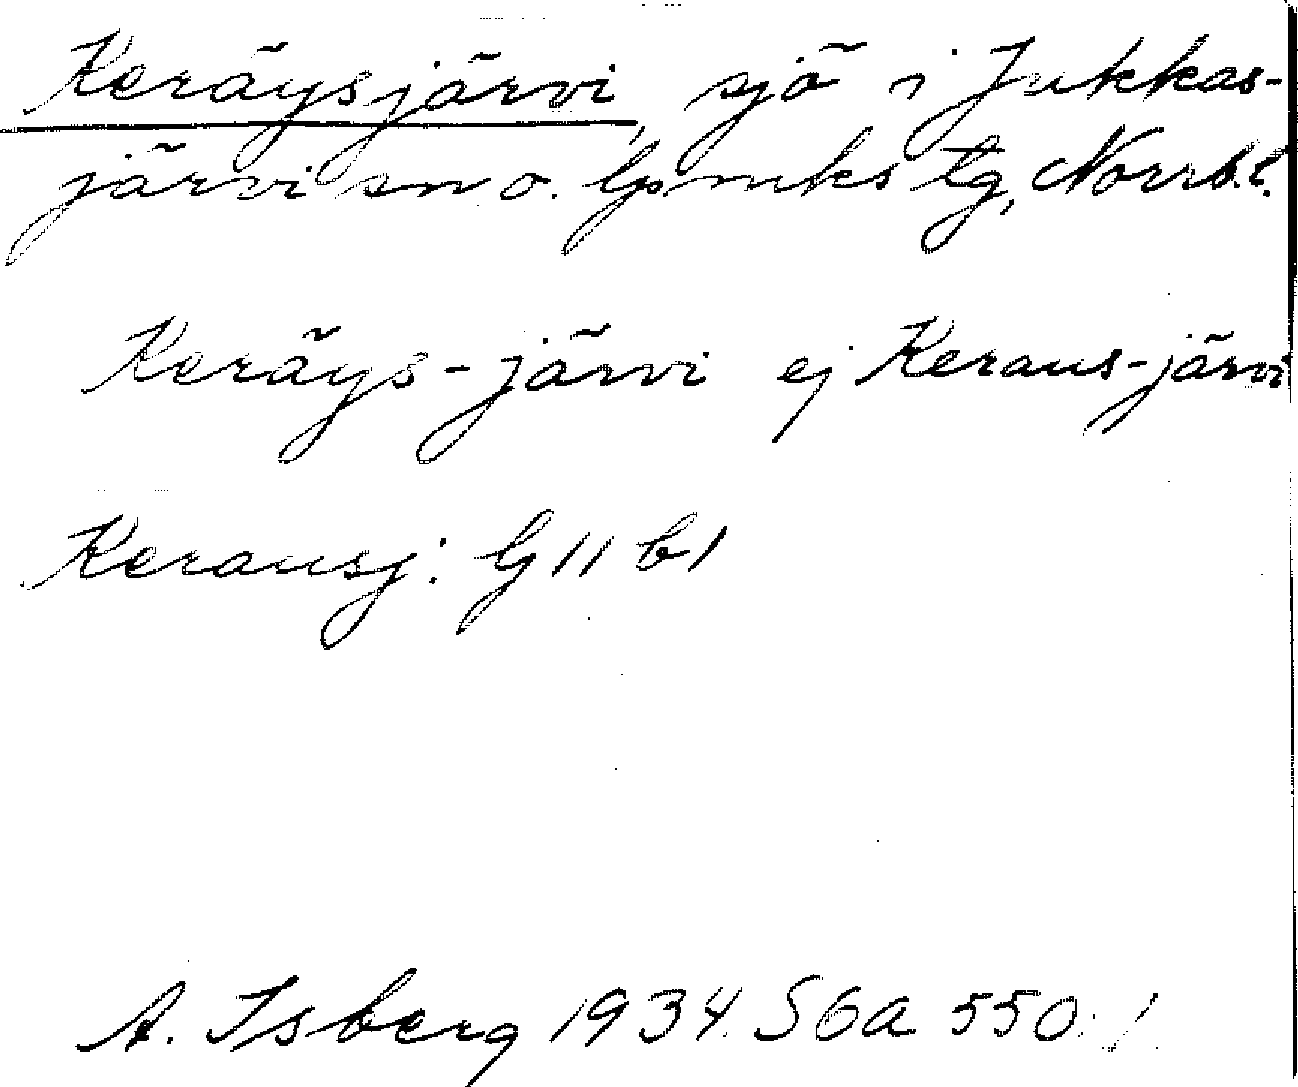 Keräysjärvi, sjö i Jukkas-
järvi sn o. lpmks tg, Norrb. l.
Keräys-järvi ej Keraus-järvi
Kerausj: G 11 b 1
A. Isberg 1934. S6a 550:1